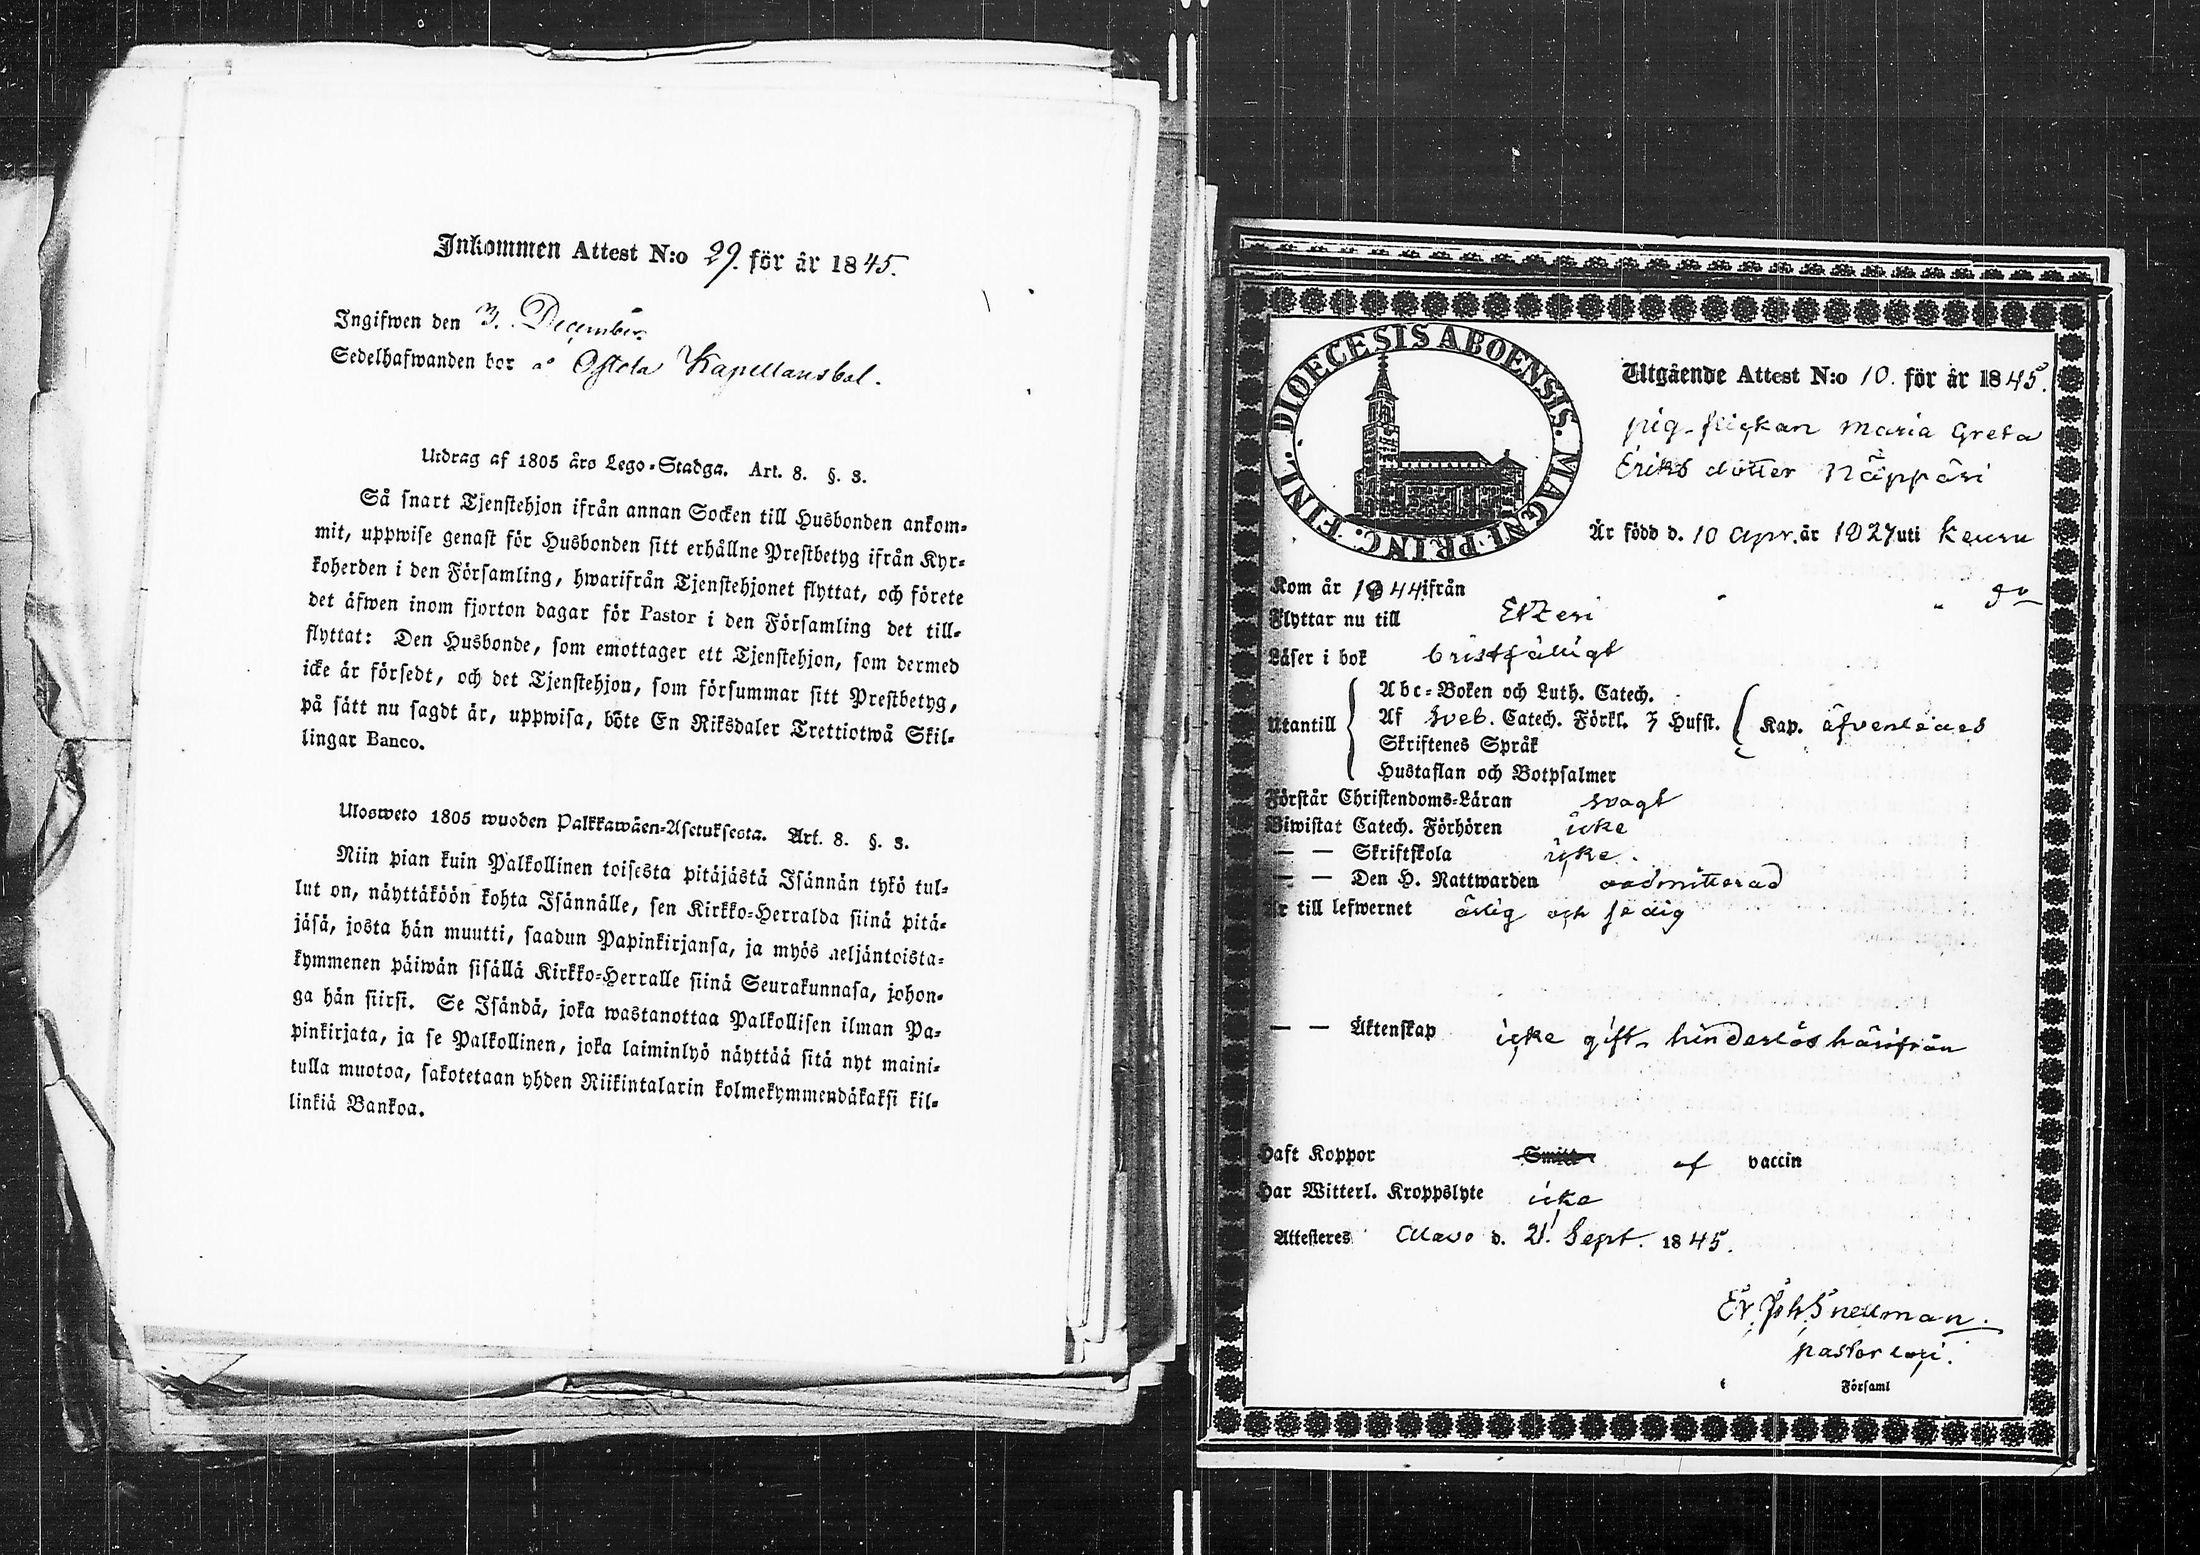 Inkommen Attest N:o 29. för år 1845.
Ingifwen den 3. December.
Sedelhafwanden bor å Ostola Kapellansbol.
Utdrag af 1805 års Lego-Stadga. Art. 8. §. 3.
Så snart Tjenstehjon ifrån annan Socken till Husbonden ankom-
mit, uppwise genast för Husbonden sitt erhållne Prestbetyg ifrån Kyr-
koherden i den Församling, hwarifrån Tjenstehjonet flyttat, och förete
det äfwen inom fjorton dagar för Pastor i den Församling det till-
flyttat: Den Husbonde, som emottager ett Tjenstehjon, som dermed
icke är försedt, och det Tjenstehjon, som försummar sitt Prestbetyg,
på sätt nu sagdt är, uppwisa, böte En Riksdaler Trettiotwå Skil-
lingar Banco.
Ulosweto 1805 wuoden Palkkawäen-Asetuksesta. Art. 8. §. 3.
Niin pian kuin Palkollinen toisesta pitäjästä Isännän tykö tul-
lut on, näyttäköön kohta Isännälle, sen Kirkko-Herralda siinä pitä-
jäsä, josta hän muutti, saadun Papinkirjansa, ja myös neljäntoista-
kymmenen päiwän sisällä Kirkko-Herralle siinä Seurakunnasa, johon-
ga hän siirsi. Se Isändä, joka wastanottaa Palkollisen ilman Pa-
pinkirjata, ja se Palkollinen, joka laiminlyö näyttää sitä nyt maini-
tulla muotoa, sakotetaan yhden Riikintalarin kolmekymmendäkaksi kil-
linkiä Bankoa.
DIOECESIS ABOENSIS. MAGNI PRINC. FINL.
Utgående Attest N:o 10. för år 1845.
pig-flickan Maria Greta
Eriks dotter Näppäri
Är född d. 10 Apr. år 1827 uti Keuru
Kom år 1844 ifrån do
Flyttar nu till Etzeri
Läser i bok bristfälligt
Abc-Boken och Luth. Catech.
Utantill Af Sveb. Catech. Förkl. 3 Hufst. Kap. äfvenledes
Skriftenes Språk
Hustaflan och Botpsalmer
Förstår Christendoms-Läran svagt
Biwistat Catech. Förhören icke
— — Skriftskola icke.
— — Den H. Nattwarden oadmitterad
Är till lefwernet ärlig och sedig
— — Äktenskap icke gift, hinderlös härifrån
Haft Koppor Smitt- af vaccin
Har Witterl. Kroppslyte icke
Attesteres Alavo d. 21. Sept. 1845.
Er. Joh. Snellman.
pastor
Församl